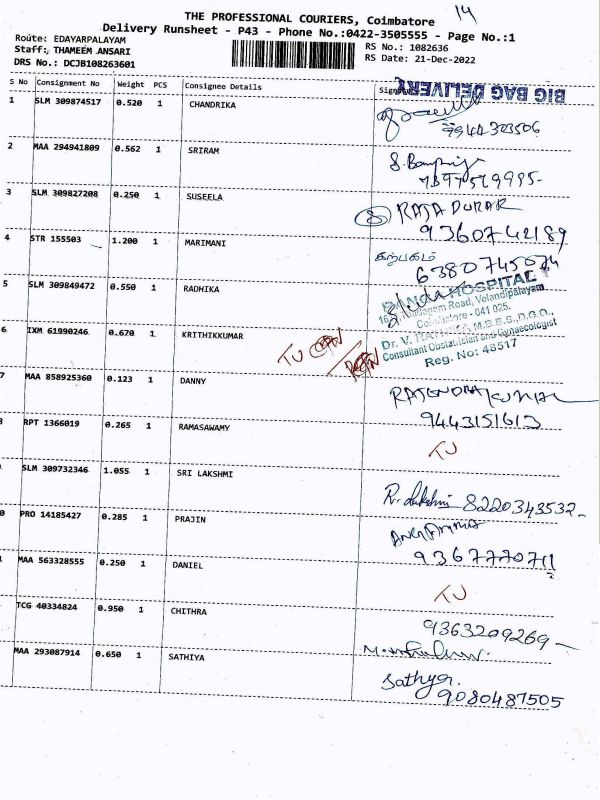 14
THE PROFESSIONAL COURIERS, Coimbatore
Delivery Runsheet - P43 - Phone No.:0422-3505555 - Page No.:1
Route: EDAYARPALAYAM
RS No.: 1082636
Staff: THAMEEM ANSARI
RS Date: 21-Dec-2022
DRS No.: DCJB108263601
BIG BAG DELIVERY
S No Consignment No Weight PCS Consignee Details
1 SLM 309874517 0.520 1 CHANDRIKA
9944303506
2 MAA 294941809 0.562 1 SRIRAM
3 SLM 309827208 0.250 1 SUSEELA RAJA DURAR
9360742189
4 STR 155503 1.200 1 MARIMANI கற்பகம்
6380745074
5 SLM 309849472 0.550 1 RADHIKA
HOSPITAL
Road, Velandipalayam
Coimbatore - 641 025.
M.B.B.S., D.G.O.,
Consultant Obstetrician and Gynaecologist
Reg. No: 48517
6 IXM 61990246 0.670 1 KRITHIKKUMAR TU
7 MAA 858925360 0.123 1 DANNY RAJENDRAKUMAR
9443151613
RPT 1366019 0.265 1 RAMASAWAMY TU
SLM 309732346 1.055 1 SRI LAKSHMI R. Lakshmi 8220343532
0 PRO 14185427 0.285 1 PRAJIN
9367770711
MAA 563328555 0.250 1 DANIEL TU
TCG 40334824 0.950 1 CHITHRA 9363209269
MAA 293087914 0.650 1 SATHIYA Sathya.
9080487505